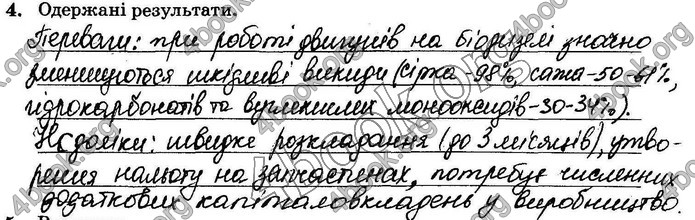 4. Одержані результати.
Переваги: при роботі двигунів на біодизелі значно
зменшуються шкідливі викиди (сірка -98%, сажа -50-61%,
гідрокарбонатів та вуглекислих монооксидів -30-34%).
Недоліки: швидке розкладання (до 3 місяців), утво-
рення нальоту на запчастинах, потребує численних
додаткових капіталовкладень у виробництво.